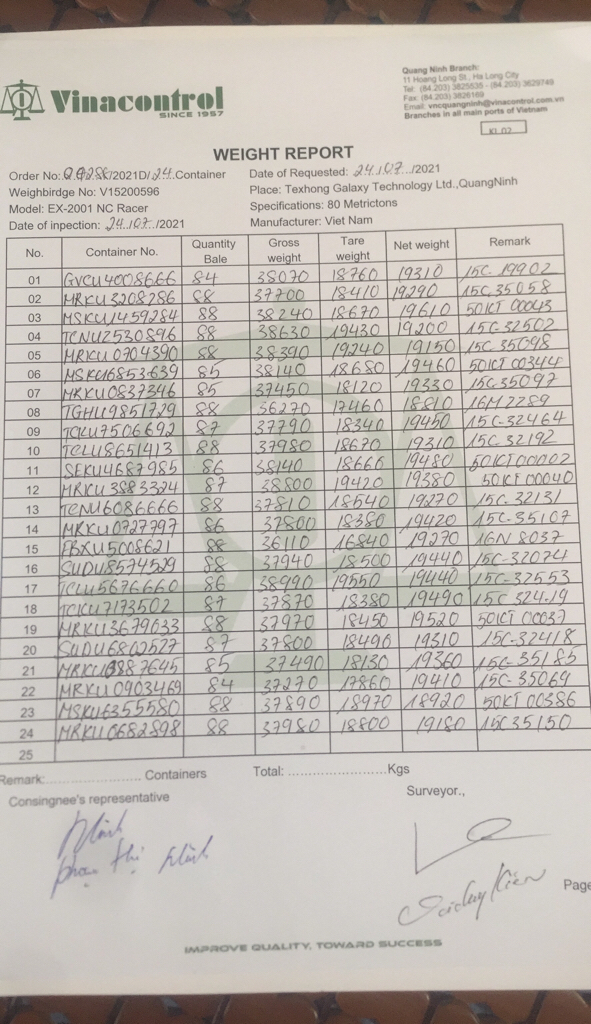 Vinacontrol
SINCE 1957
Quang Ninh Branch:
11 Hoang Long St., Ha Long City
Tel: (84.203) 3825535 - (84.203) 3629749
Fax: (84.203) 3826169
Email: vncquangninh@vinacontrol.com.vn
Branches in all main ports of Vietnam
KL 02
WEIGHT REPORT
Order No: /2021D/24.Container Date of Requested: 24./07./2021
Weighbirdge No: V15200596 Place: Texhong Galaxy Technology Ltd.,QuangNinh
Model: EX-2001 NC Racer Specifications: 80 Metrictons
Date of inpection: 24./07./2021 Manufacturer: Viet Nam
No. Container No. Quantity Bale Gross weight Tare weight Net weight Remark
01 GVCU4008666 84 38070 18760 19310 15C-19902
02 MRKU3208286 88 37700 18410 19290 15C.35058
03 MSKU1459284 88 38240 18670 19610 50KT 00043
04 TCNU2530896 88 38630 19430 19200 15C-32502
05 MRKU0704390 88 38390 19240 19150 15C 35098
06 MSKU6853639 85 38140 18680 19460 50KT 00344
07 MRKU0837346 85 37450 18120 19330 15C 35097
08 TGHU9851729 88 36270 17460 18810 16M 2289
09 TCKU7506692 87 37790 18340 19450 15C-32464
10 TCLU8651413 88 37980 18670 19310 15C 32192
11 SEKU4687985 86 38140 18660 19480 50KT 00002
12 MRKU3883324 87 38800 19420 19380 50KT 00040
13 TCNU6086666 88 37810 18540 19270 15C-32131
14 MRKU0727797 86 37800 18380 19420 15C-35107
15 FBXU5008621 88 36110 16840 19270 16N 8037
16 SUDU8574529 88 37940 18500 19440 15C-32074
17 TCLU5676660 86 38990 19550 19440 15C-32553
18 TCKU7173502 87 37870 18380 19490 15C 32419
19 MRKU3679033 88 37970 18450 19520 50KT 00037
20 SUDU6802527 87 37800 18490 19310 15C-32418
21 MRKU3887645 85 37490 18130 19360 15C-35185
22 MRKU0903469 84 37270 17860 19410 15C-35069
23 MSKU6355580 88 37890 18970 18920 50KT 00386
24 MRKU0682898 88 37980 18800 19180 15C 35150
25
Remark:.................... Containers Total: .....................Kgs
Consingnee's representative Surveyor.,
Phạm Thị
Page
IMPROVE QUALITY, TOWARD SUCCESS